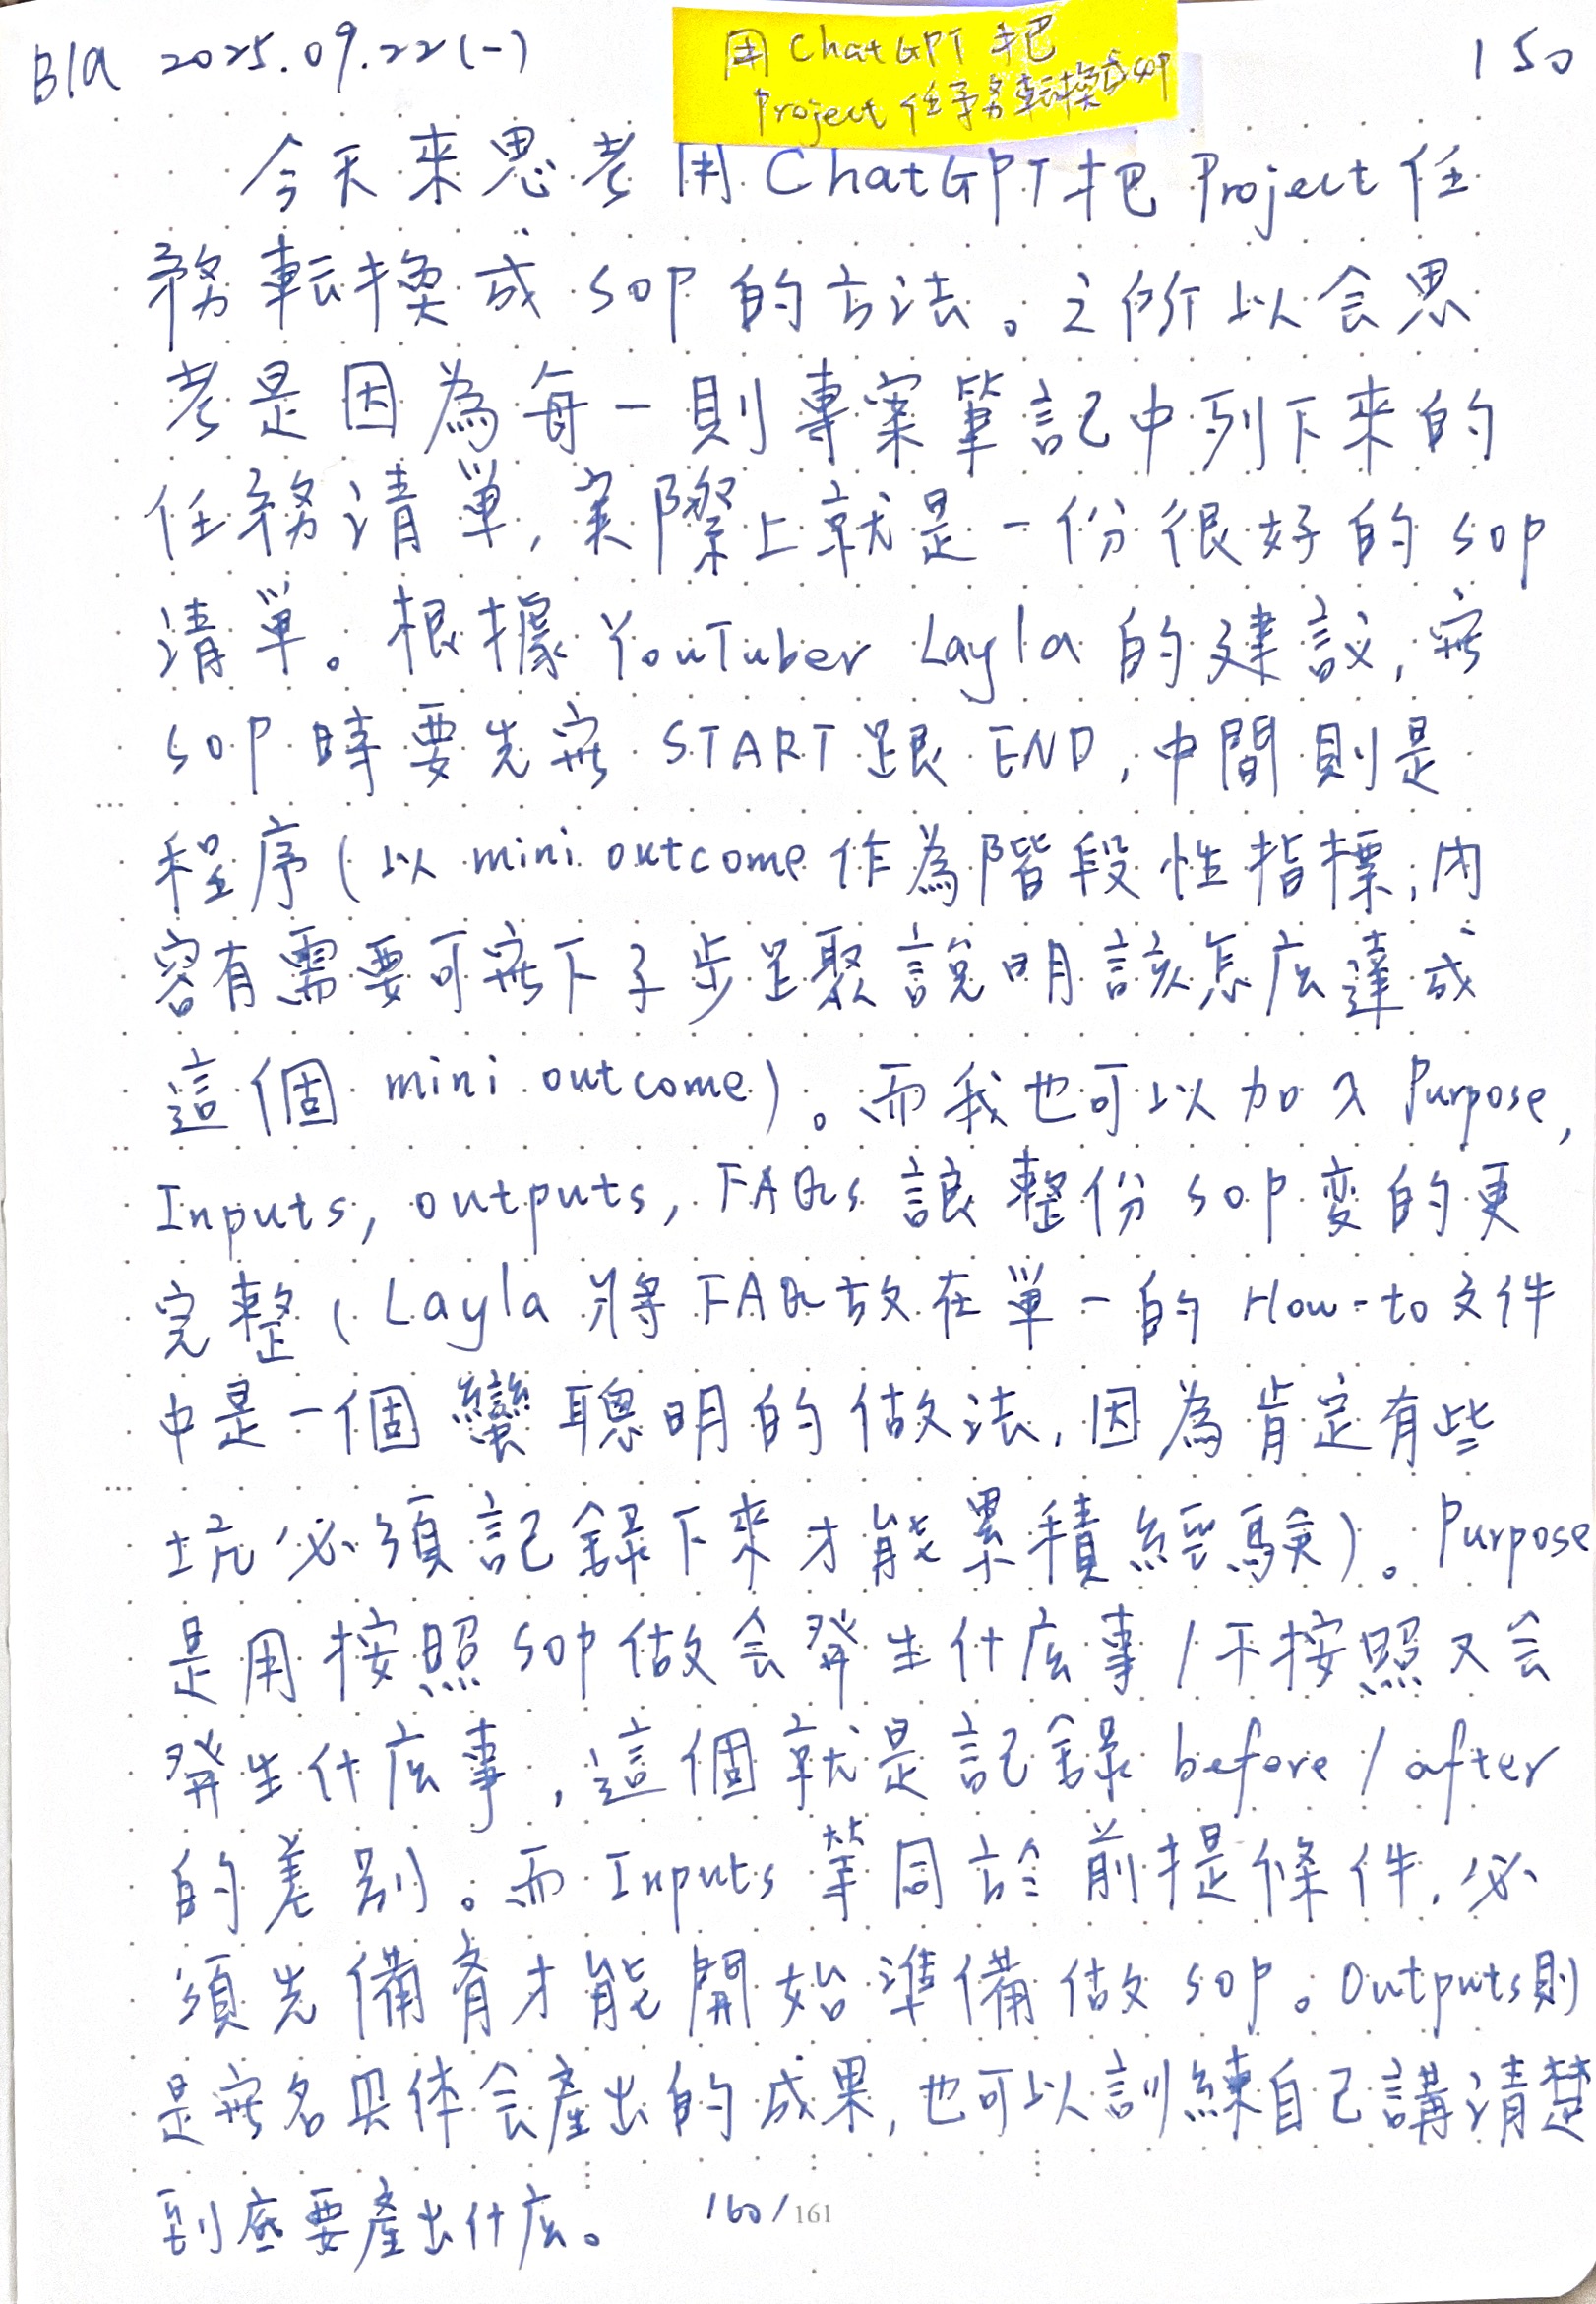 B1a 2025.09.22(一)
150
用 ChatGPT 把
Project 任務転換成 SOP
今天來思考用 ChatGPT 把 Project 任
務転換成 SOP 的方法。之所以会思
考是因為每一則專案筆記中列下來的
任務清單,実際上就是一份很好的 SOP
清單。根據 YouTuber Layla 的建議,寫
SOP 時要先寫 START 跟 END,中間則是
程序(以 mini outcome 作為階段性指標;內
容有需要可寫下子步驟說明該怎麼達成
這個 mini outcome)。而我也可以加入 Purpose,
Inputs, outputs, FAQs 讓整份 SOP 変的更
完整(Layla 將 FAQ 放在單一的 How-to 文件
中是一個蠻聰明的做法,因為肯定有些
坑必須記錄下來才能累積經驗)。Purpose
是用按照 SOP 做会發生什麼事/不按照又会
發生什麼事,這個就是記錄 before/after
的差別。而 Inputs 等同於前提條件,必
須先備齊才能開始準備做 SOP。Outputs 則
是寫名具体会產出的成果,也可以訓練自己講清楚
到底要產出什麼。
160/161